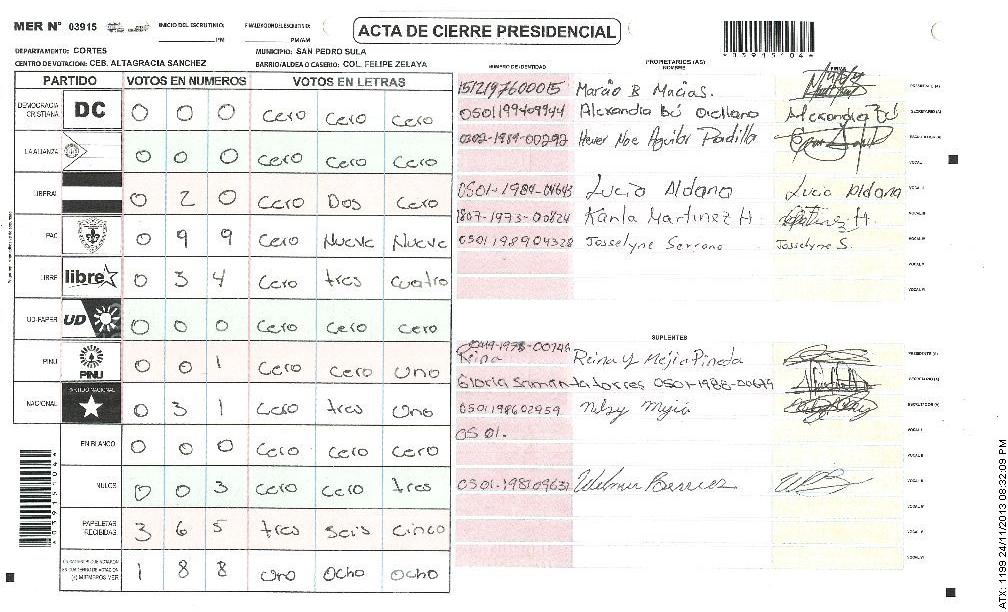 MER N° 03915
INICIO DEL ESCRUTINIO:
PM
FINALIZACION DEL ESCRUTINIO:
PM/AM
ACTA DE CIERRE PRESIDENCIAL
*0391510 4*
DEPARTAMENTO: CORTES
MUNICIPIO: SAN PEDRO SULA
CENTRO DE VOTACION: CEB. ALTAGRACIA SANCHEZ
BARRIO/ALDEA O CASERIO: COL. FELIPE ZELAYA
PARTIDO VOTOS EN NUMEROS VOTOS EN LETRAS
DEMOCRACIA CRISTIANA DC 0 0 0 Cero Cero Cero
LA ALIANZA 0 0 0 Cero Cero Cero
LIBERAL 0 2 0 Cero Dos Cero
PAC 0 9 9 Cero Nueve Nueve
LIBRE libre 0 3 4 Cero tres cuatro
UD-FAPER UD 0 0 0 Cero Cero cero
PINU PINU 0 0 1 Cero Cero Uno
NACIONAL PARTIDO NACIONAL 0 3 1 Cero tres Uno
EN BLANCO 0 0 0 Cero Cero Cero
NULOS 0 0 3 Cero Cero tres
PAPELETAS RECIBIDAS 3 6 5 tres Seis Cinco
1 8 8 Uno Ocho Ocho
NUMERO DE IDENTIDAD
PROPIETARIOS (AS)
NOMBRE
FIRMA
1512197600015 Marcio B Macias. PRESIDENTE (A)
0501199409944 Alexandra Bú Orellano Alexandra Bú SECRETARIO (A)
0302-1989-00292 Hever Noe Aguilar Padilla ESCRUTADOR (A)
VOCAL I
0501-1984-04643 Lucio Aldana Lucio Aldana VOCAL II
1807-1973-00824 Karla Martinez H. VOCAL III
0501198904328 Josselyne Serrano Josselyne S. VOCAL IV
VOCAL V
VOCAL VI
SUPLENTES
Reina Reina y Mejia Pineda PRESIDENTE (A)
Gloria Saman ta torres 0501-1988-00679 SECRETARIO (A)
0501198602959 Nelsy Mejía ESCRUTADOR (A)
0501. VOCAL I
VOCAL II
0501-198109631 Welmer Berrios VOCAL III
VOCAL IV
VOCAL V
VOCAL VI
ATX: 1199 24/11/2013 08:32:09 PM